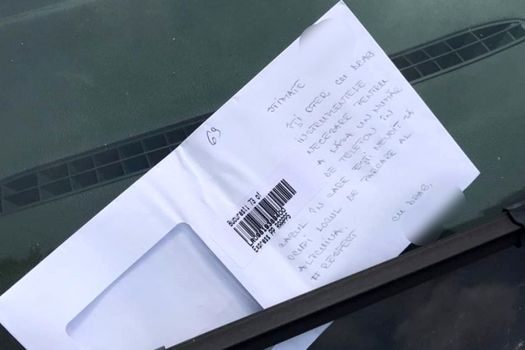 69
STIMATE
ÎȚI OFER CU DRAG
INSTRUMENTELE
NECESARE PENTRU
A LĂSA UN NUMĂR
DE TELEFON ÎN
CAZUL ÎN CARE EȘTI NEVOIT SĂ
OCUPI LOCUL DE PARCARE AL
ALTCUIVA.
# RESPECT
CU DRAG,
Bucuresti 73 of